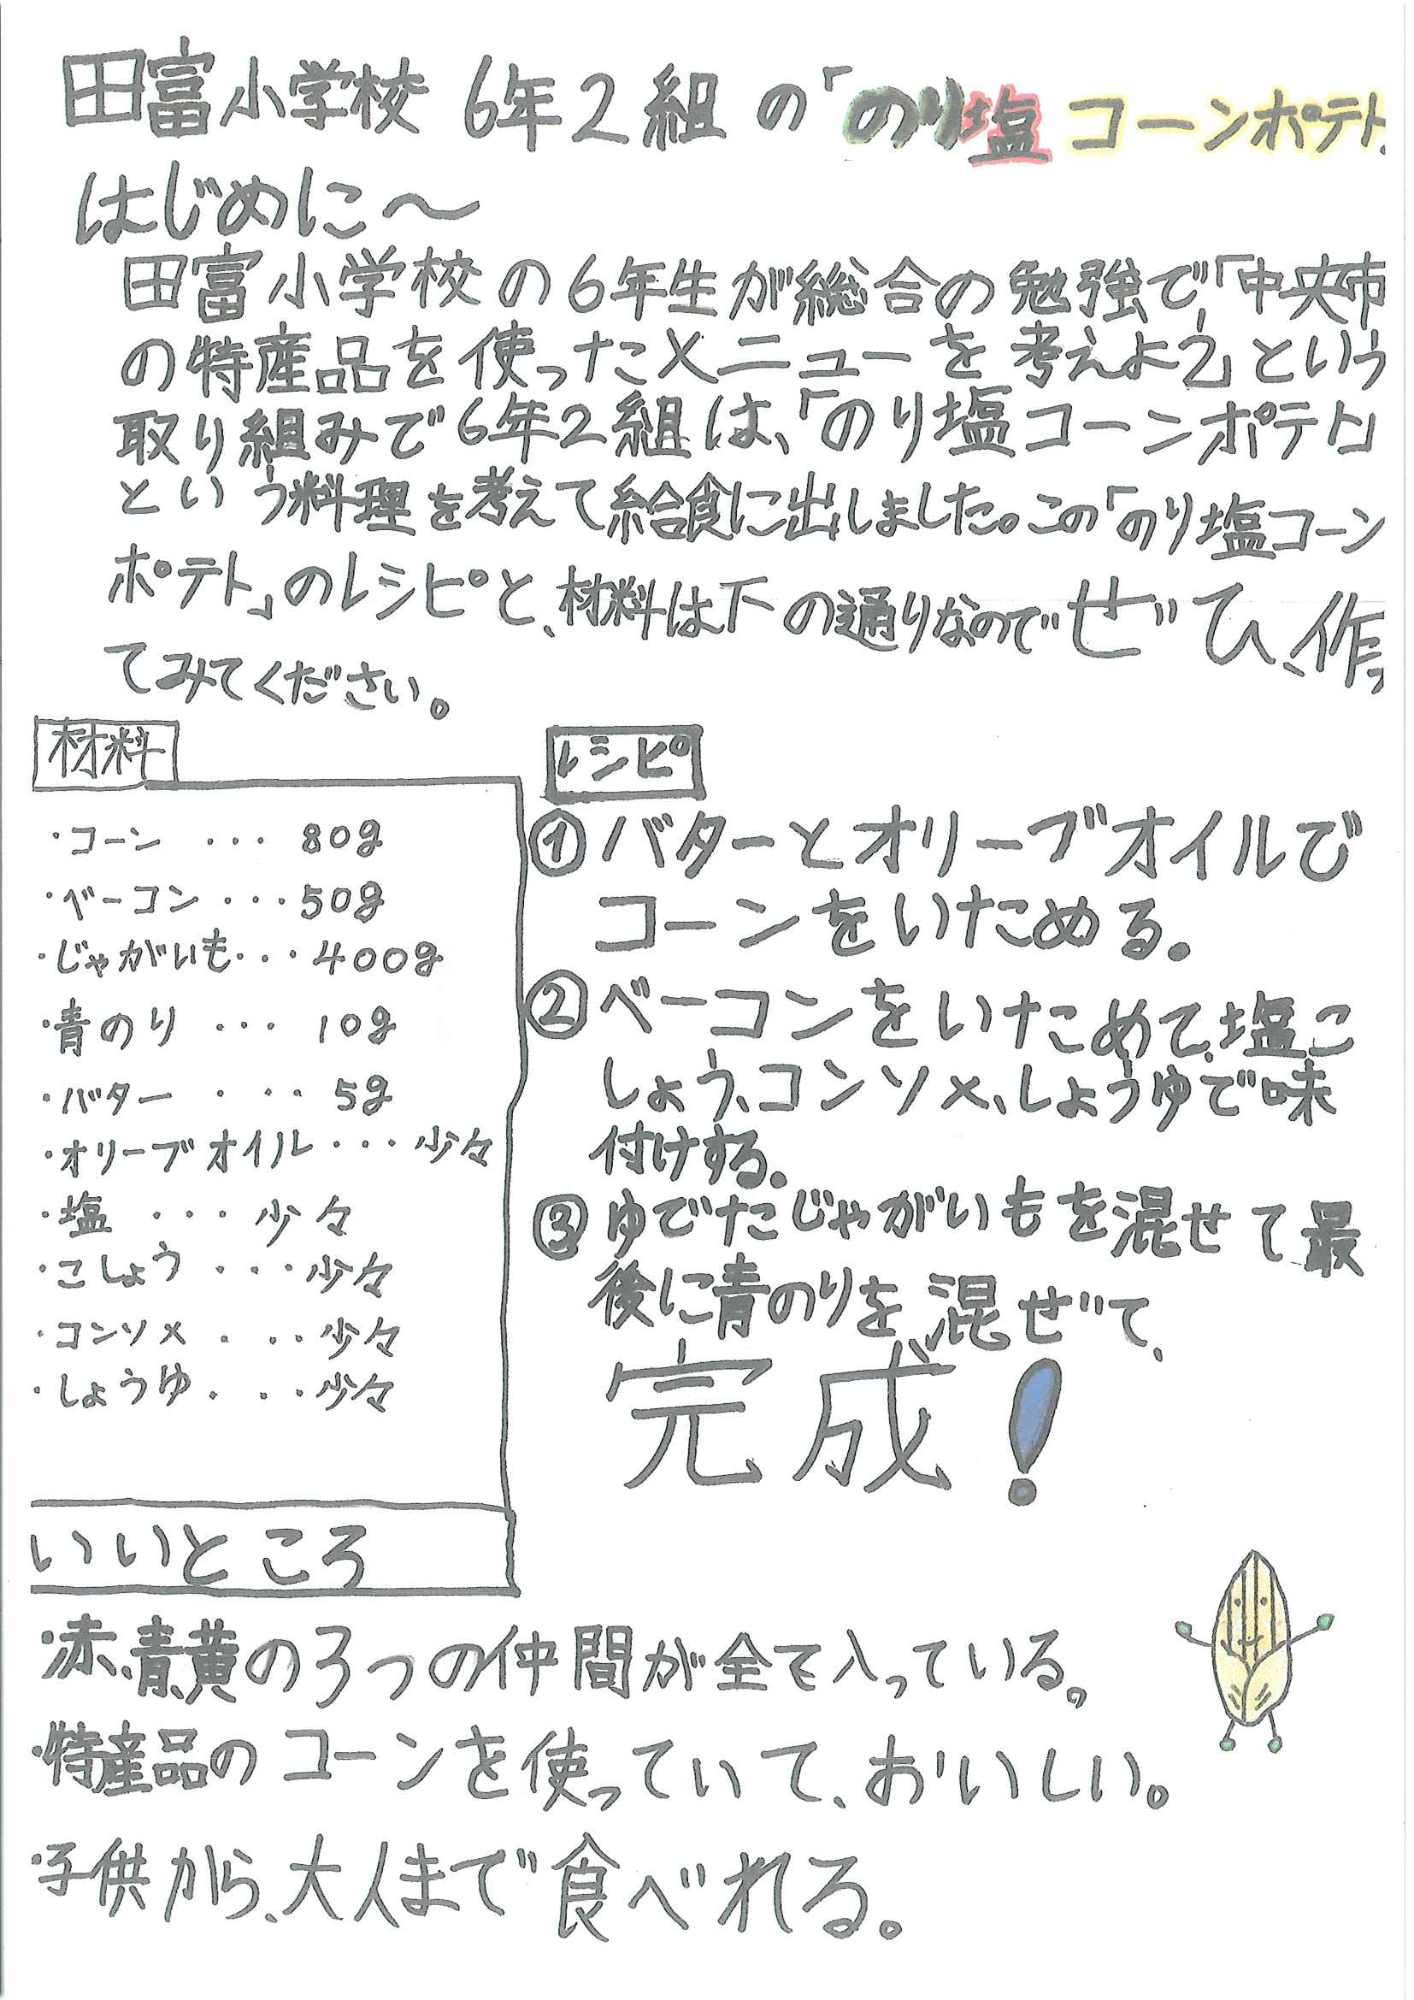 田富小学校 6年2組 の「のり塩 コーンポテト」
はじめに〜
田富小学校の6年生が総合の勉強で、「中央市
の特産品を使ったメニューを考えよう」という
取り組みで6年2組は、「のり塩コーンポテト」
という料理を考えて給食に出しました。この「のり塩コーン
ポテト」のレシピと、材料は下の通りなのでぜひ、作っ
てみてください。
材料
・コーン ・・・ 80g
・ベーコン ・・・ 50g
・じゃがいも・・・400g
・青のり ・・・ 10g
・バター ・・・ 5g
・オリーブオイル・・・少々
・塩 ・・・ 少々
・こしょう ・・・少々
・コンソメ ・・・少々
・しょうゆ・・・少々
レシピ
①バターとオリーブオイルで
コーンをいためる。
②ベーコンをいためて、塩こ
しょう、コンソメ、しょうゆで味
付けする。
③ゆでたじゃがいもを混せて、最
後に青のりを、混ぜて、
完成!
いいところ
・赤、青、黄の3つの仲間が全て入っている。
・特産品のコーンを使っていて、おいしい。
・子供から、大人まで食べれる。